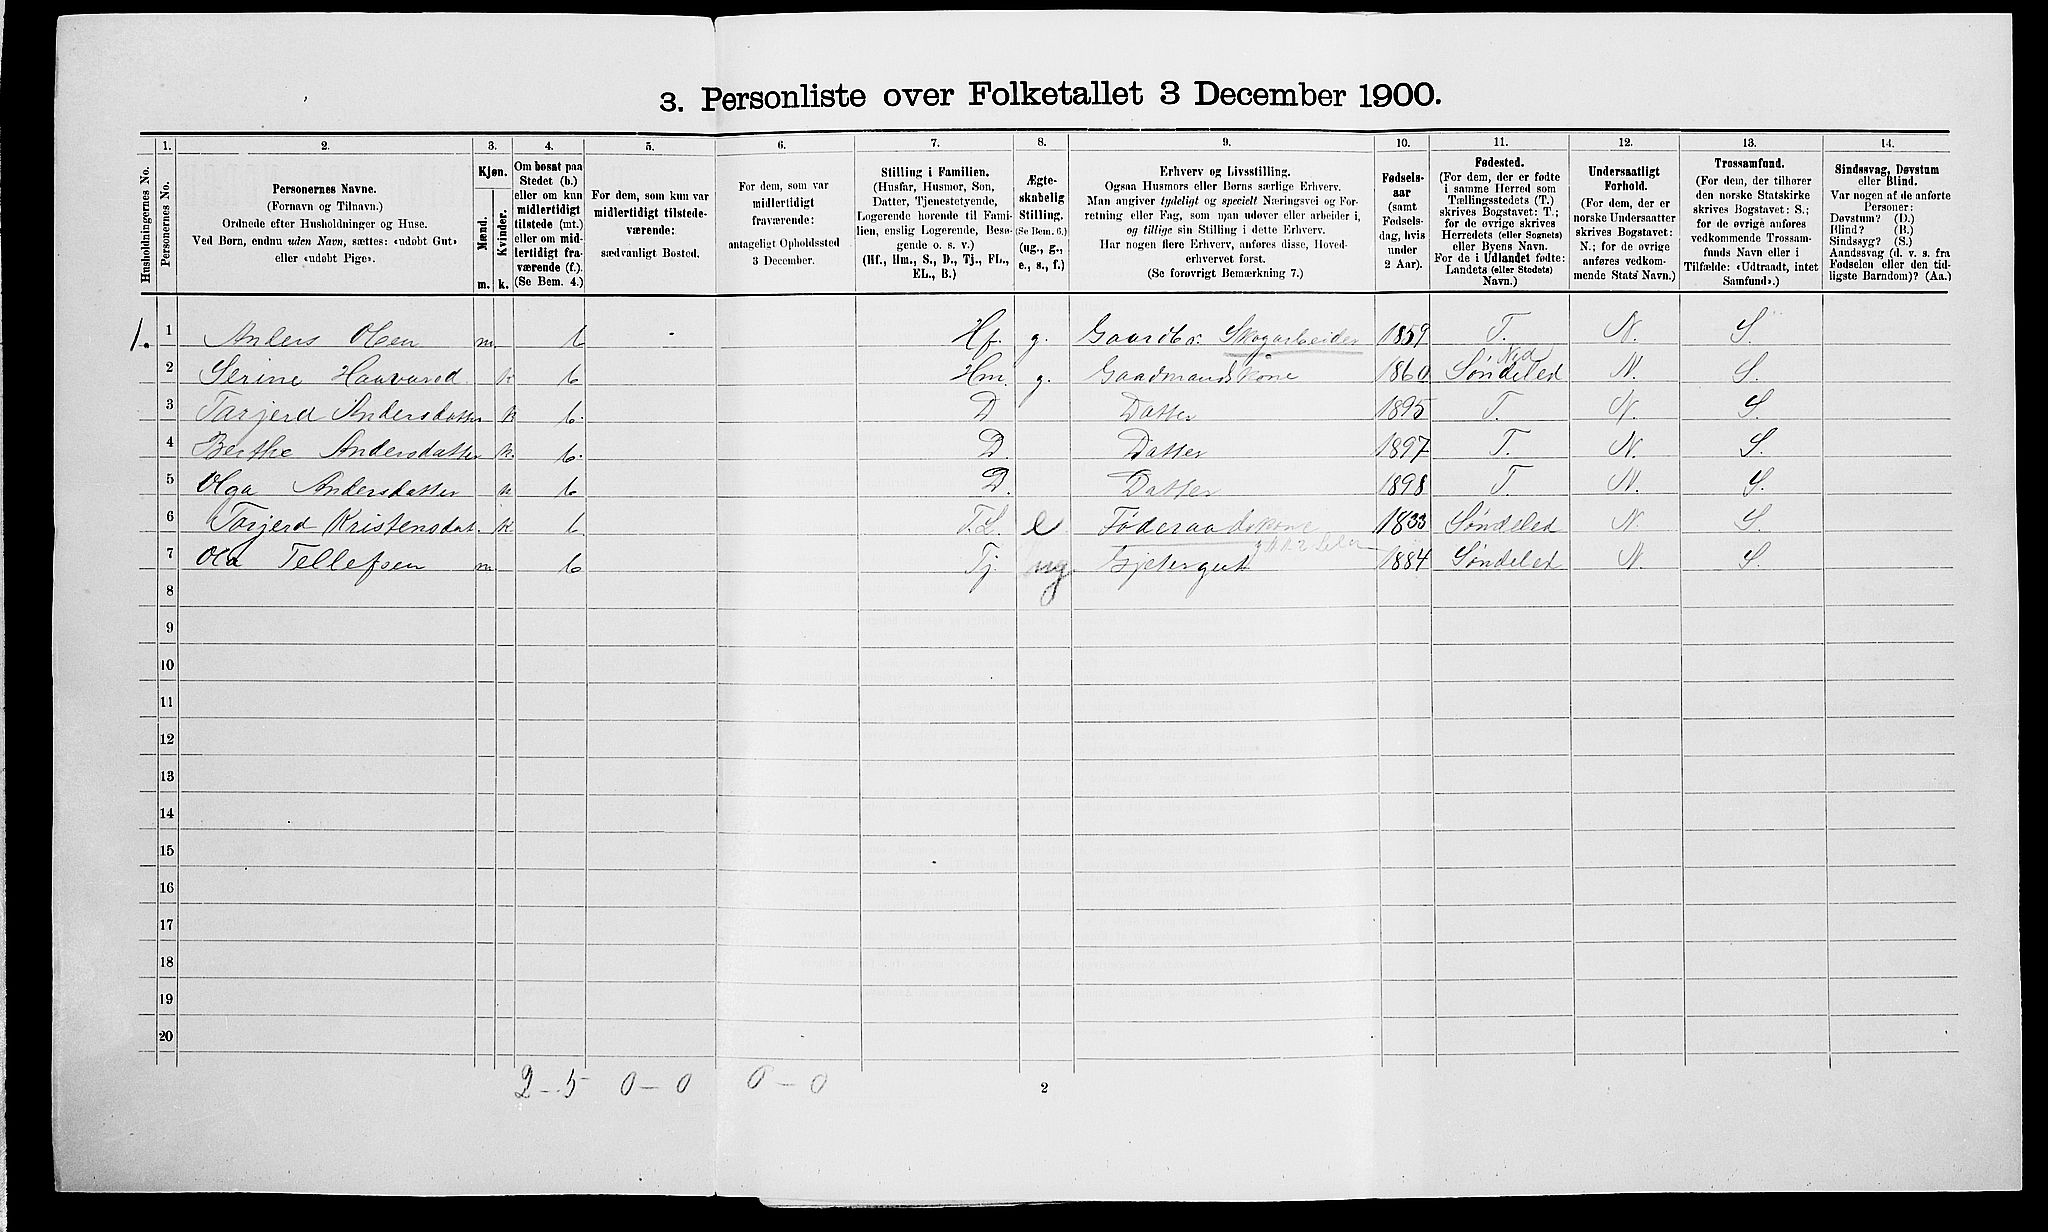 3. Personliste over Folketallet 3 December 1900.
Husholdningernes No.
1.
Personernes No.
2.
Personernes Navne.
(Fornavn og Tilnavn.)
Ordnede efter Husholdninger og Huse.
Ved Børn, endnu uden Navn, sættes: «udøbt Gut»
eller «udøbt Pige».
3.
Kjøn.
Mænd.
Kvinder.
m. k.
4.
Om bosat paa
Stedet (b.)
eller om kun
midlertidigt
tilstede (mt.)
eller om mid-
lertidigt fra-
værende (f.).
(Se Bem. 4.)
5.
For dem, som kun var
midlertidigt tilstede-
værende:
sædvanligt Bosted.
6.
For dem, som var
midlertidigt
fraværende:
antageligt Opholdssted
3 December.
7.
Stilling i Familien.
(Husfar, Husmor, Søn,
Datter, Tjenestetyende,
Logerende hørende til Fami-
lien, enslig Logerende, Besø-
gende o. s. v.)
(Hf., Hm., S., D., Tj., FL.,
EL., B.)
8.
Ægte-
skabelig
Stilling.
(Se Bem. 6.)
(ug., g.,
e., s., f.)
9.
Erhverv og Livsstilling.
Ogsaa Husmors eller Børns særlige Erhverv.
Man angiver tydeligt og specielt Næringsvei og For-
retning eller Fag, som man udøver eller arbeider i,
og tillige sin Stilling i dette Erhverv.
Har nogen flere Erhverv, anføres disse, Hoved-
erhvervet først.
(Se forøvrigt Bemærkning 7.)
10.
Fødsels-
aar
(samt
Fødsels-
dag, hvis
under
2 Aar).
11.
Fødested.
(For dem, der er fødte
i samme Herred som
Tællingsstedets (T.)
skrives Bogstavet: T.;
for de øvrige skrives
Herredets (eller Sognets)
eller Byens Navn.
For de i Udlandet fødte:
Landets (eller Stedets)
Navn.)
12.
Undersaatligt
Forhold.
(For dem, der er
norske Undersaatter
skrives Bogstavet:
N.; for de øvrige
anføres vedkom-
mende Stats Navn.)
13.
Trossamfund.
(For dem, der tilhører
den norske Statskirke
skrives Bogstavet: S.;
for de øvrige anføres
vedkommende Trossam-
funds Navn eller i
Tilfælde: «Udtraadt, intet
Samfund».)
14.
Sindssvag, Døvstum
eller Blind.
Var nogen af de anførte
Personer:
Døvstum? (D.)
Blind? (B.)
Sindssyg? (S.)
Aandssvag (d. v. s. fra
Fødselen eller den tid-
ligste Barndom)? (Aa.)
1. 1 Anders Olsen m. b Hf. g. Gaardbr. Skogarbeider 1859 T. N. S.
2 Serine Haavarsd. k b Hm. g. Gaadmandskone 1860 Søndeled N. S.
3 Tarjerd Andersdatter k b. D Datter 1895 T. N. S.
4 Berthe Andersdatter k. b. D. Datter 1897 T. N. S.
5 Olga Andersdatter k b D. Datter 1898 T. N. S.
6 Torjerd Kristensdat. k b e Føderaadskone 1833 Søndeled N. S.
7 Ola Tellefsen m b Tj. ug Gjetergut 1884 Søndeled N. S.
8
9
10
11
12
13
14
15
16
17
18
19
20
2-5 0-0 0-0
2